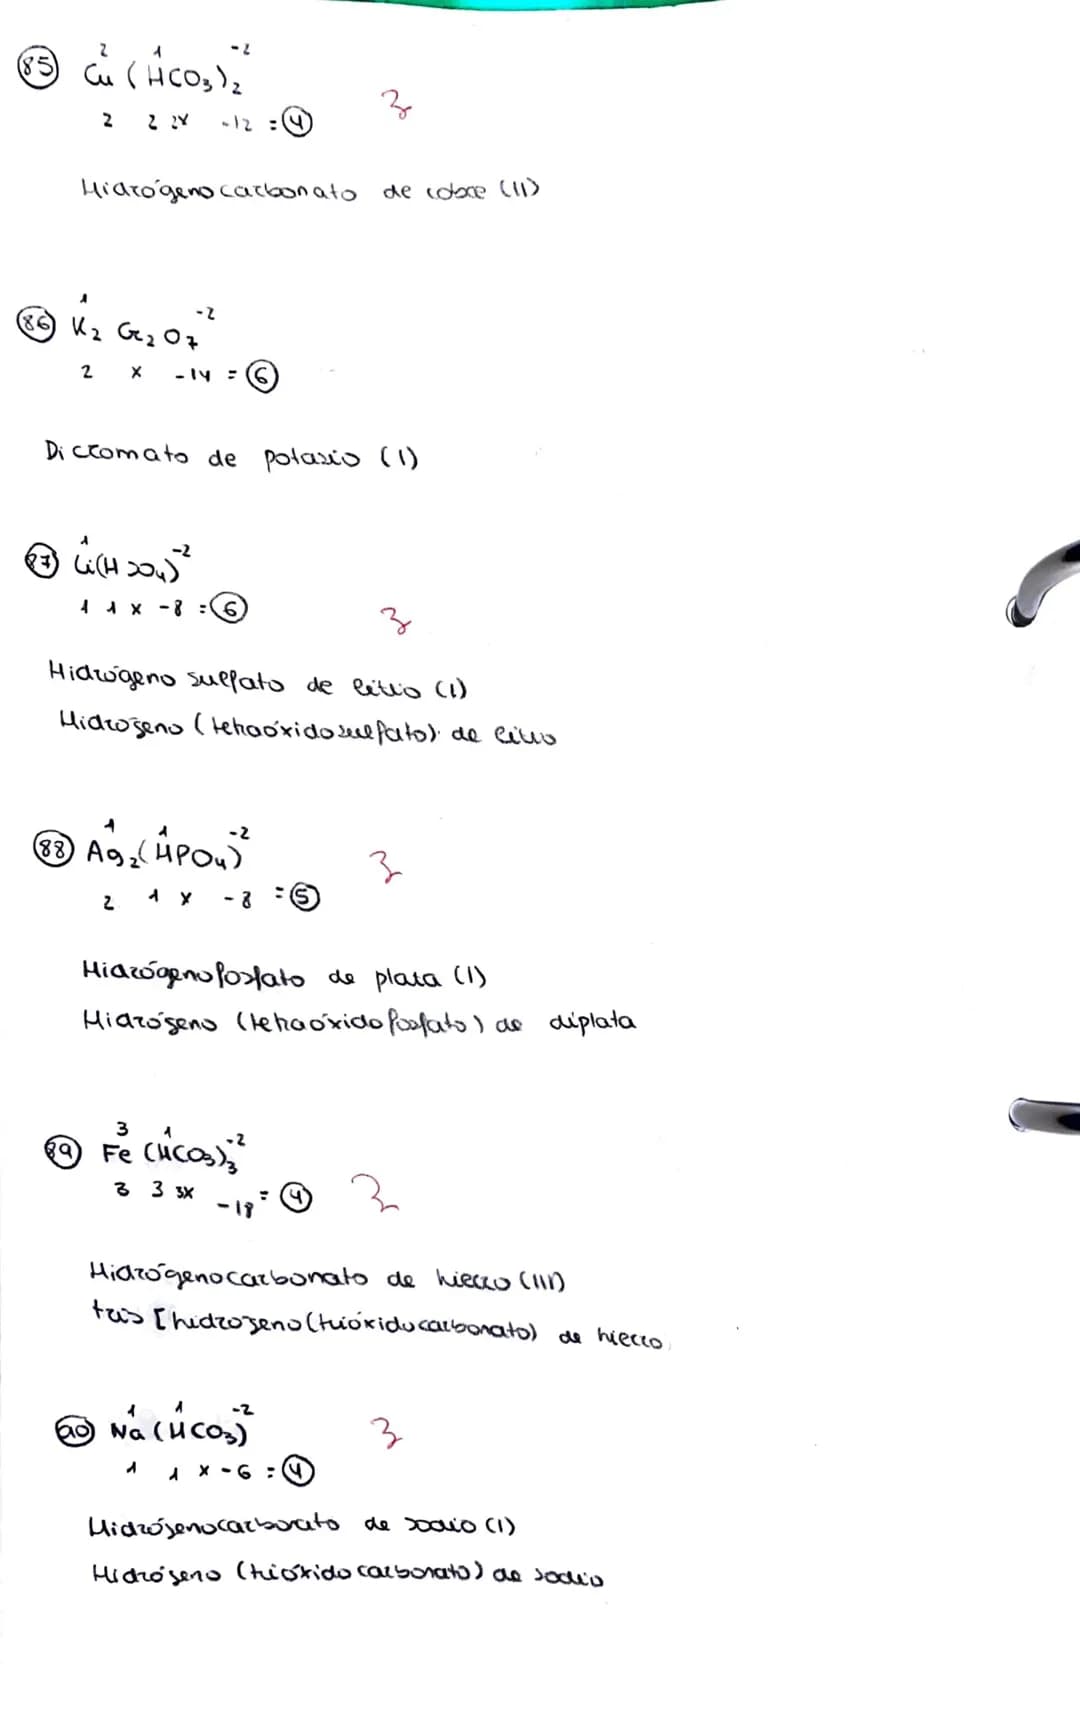 2 1 -2
85 Cu (HCO3)2
2 2 2x -12 = 4
3
Hidrógenocarbonato de cobre (II)
1 -2
86 K2 Cr2 O7
2 x -14 = 6
Dicromato de potasio (I)
1 -2
87 Li(HSO4)
1 1 x -8 = 6
3
Hidrógeno sulfato de litio (I)
Hidrógeno (tetraóxidosulfato) de litio
1 1 -2
88 Ag2(HPO4)
2 1 x -8 = 5
3
Hidrógenofosfato de plata (I)
Hidrógeno (tetraóxidofosfato) de diplata
3 1 -2
89 Fe (HCO3)3
3 3 3x -18 = 4
3
Hidrógenocarbonato de hierro (III)
tris [hidrogeno (trióxidocarbonato) de hierro
1 1 -2
90 Na (HCO3)
1 1 x -6 = 4
3
Hidrógenocarbonato de sodio (I)
Hidrógeno (trióxido carbonato) de sodio